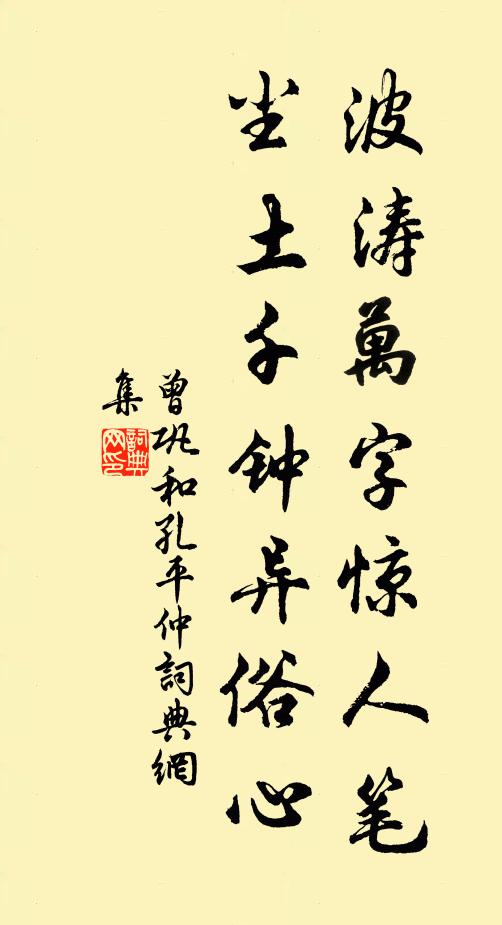 波涛萬字惊人笔
尘土千钟异俗心
曾巩和孔平仲詞典網
集
詞典網印